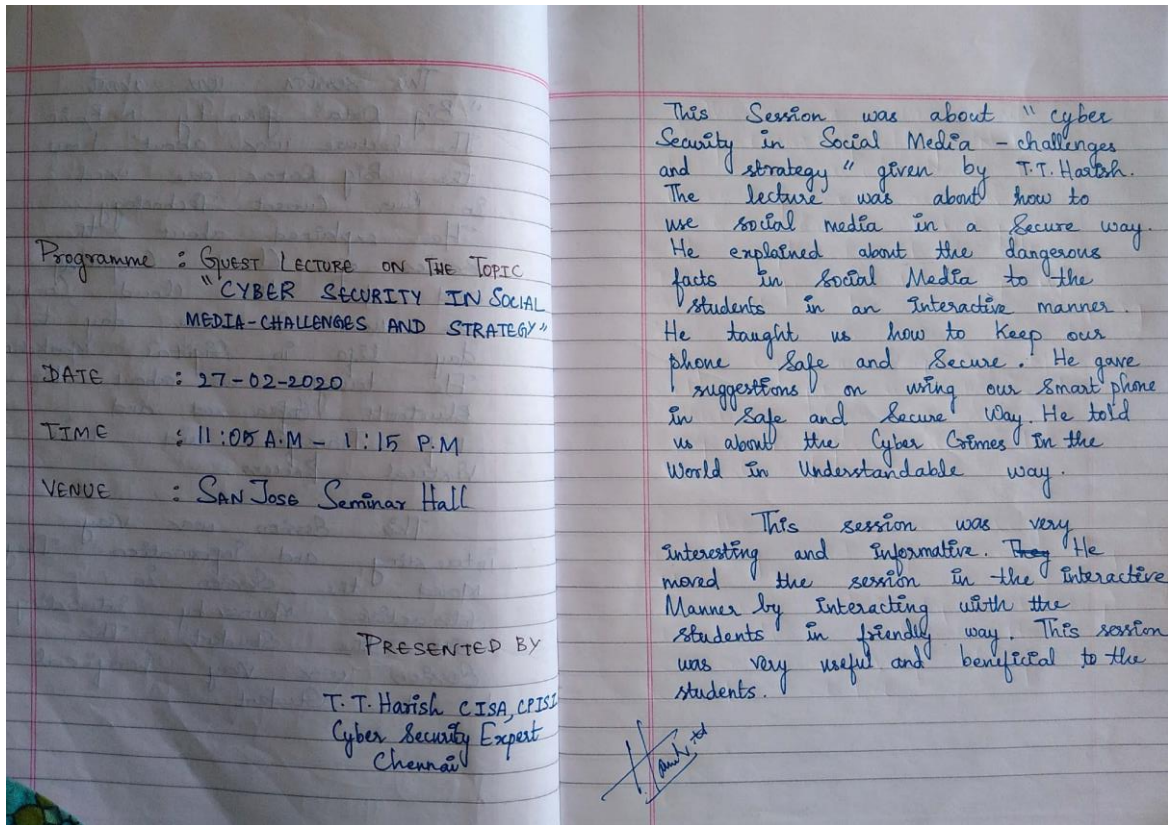 Programme : GUEST LECTURE ON THE TOPIC
"CYBER SECURITY IN SOCIAL
MEDIA-CHALLENGES AND STRATEGY"
DATE : 27-02-2020
TIME : 11:05 A.M - 1:15 P.M
VENUE : SAN JOSE Seminar Hall
PRESENTED BY
T.T. Harish CISA, CPISI
Cyber Security Expert
Chennai
This Session was about "cyber
Security in Social Media - challenges
and strategy" given by T.T. Harish.
The lecture was about how to
use social media in a Secure way.
He explained about the dangerous
facts in Social Media to the
students in an Interactive manner.
He taught us how to Keep our
phone Safe and Secure. He gave
suggestions on using our Smart phone
in Safe and Secure Way. He told
us about the Cyber Crimes in the
World in Understandable way.
This session was very
interesting and informative. They He
moved the session in the interactive
Manner by Interacting with the
students in friendly way. This session
was very useful and beneficial to the
students.